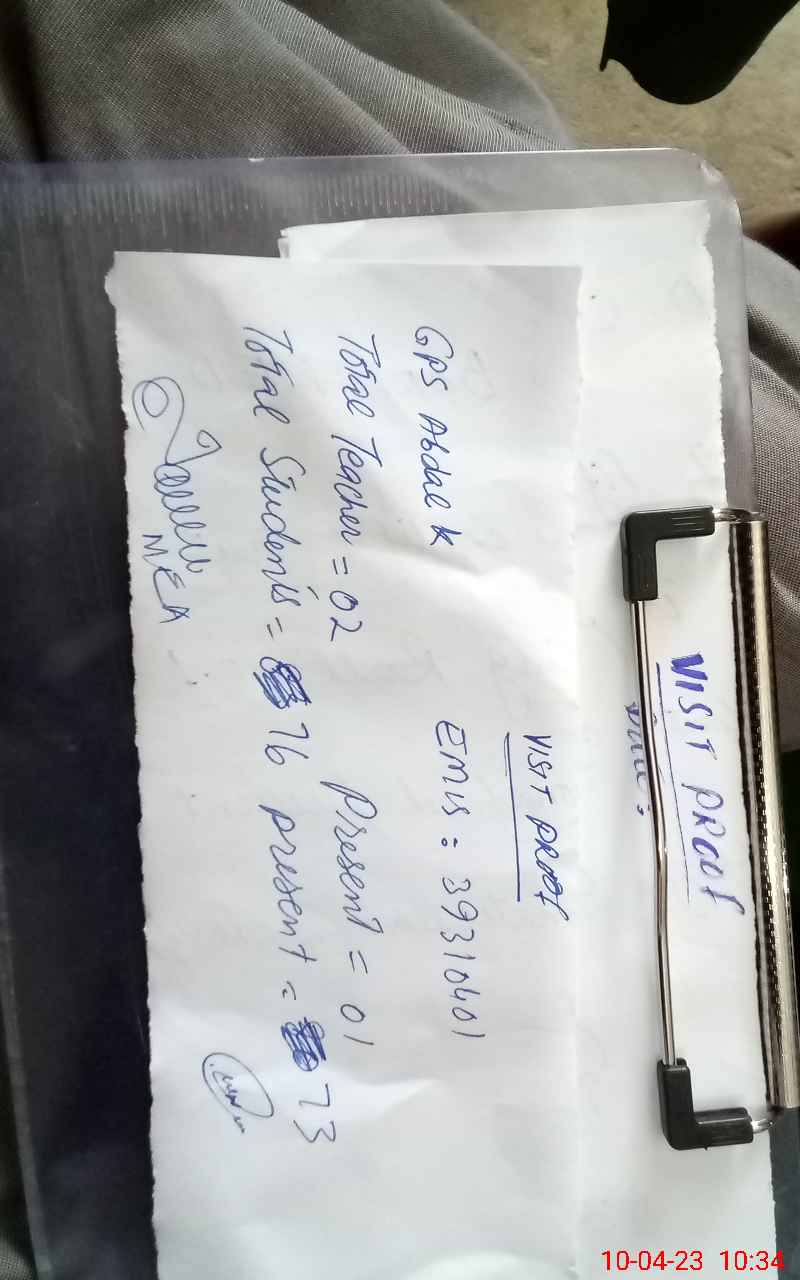 VISIT PROOF
VISIT PROOF
GPS Abdal K EMIS: 39310401
Total Teacher = 02 Present = 01
Total Students = 76 present = 73
MEA
10-04-23 10:34